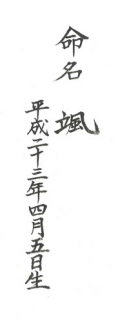 命名 颯
平成二十三年四月五日生